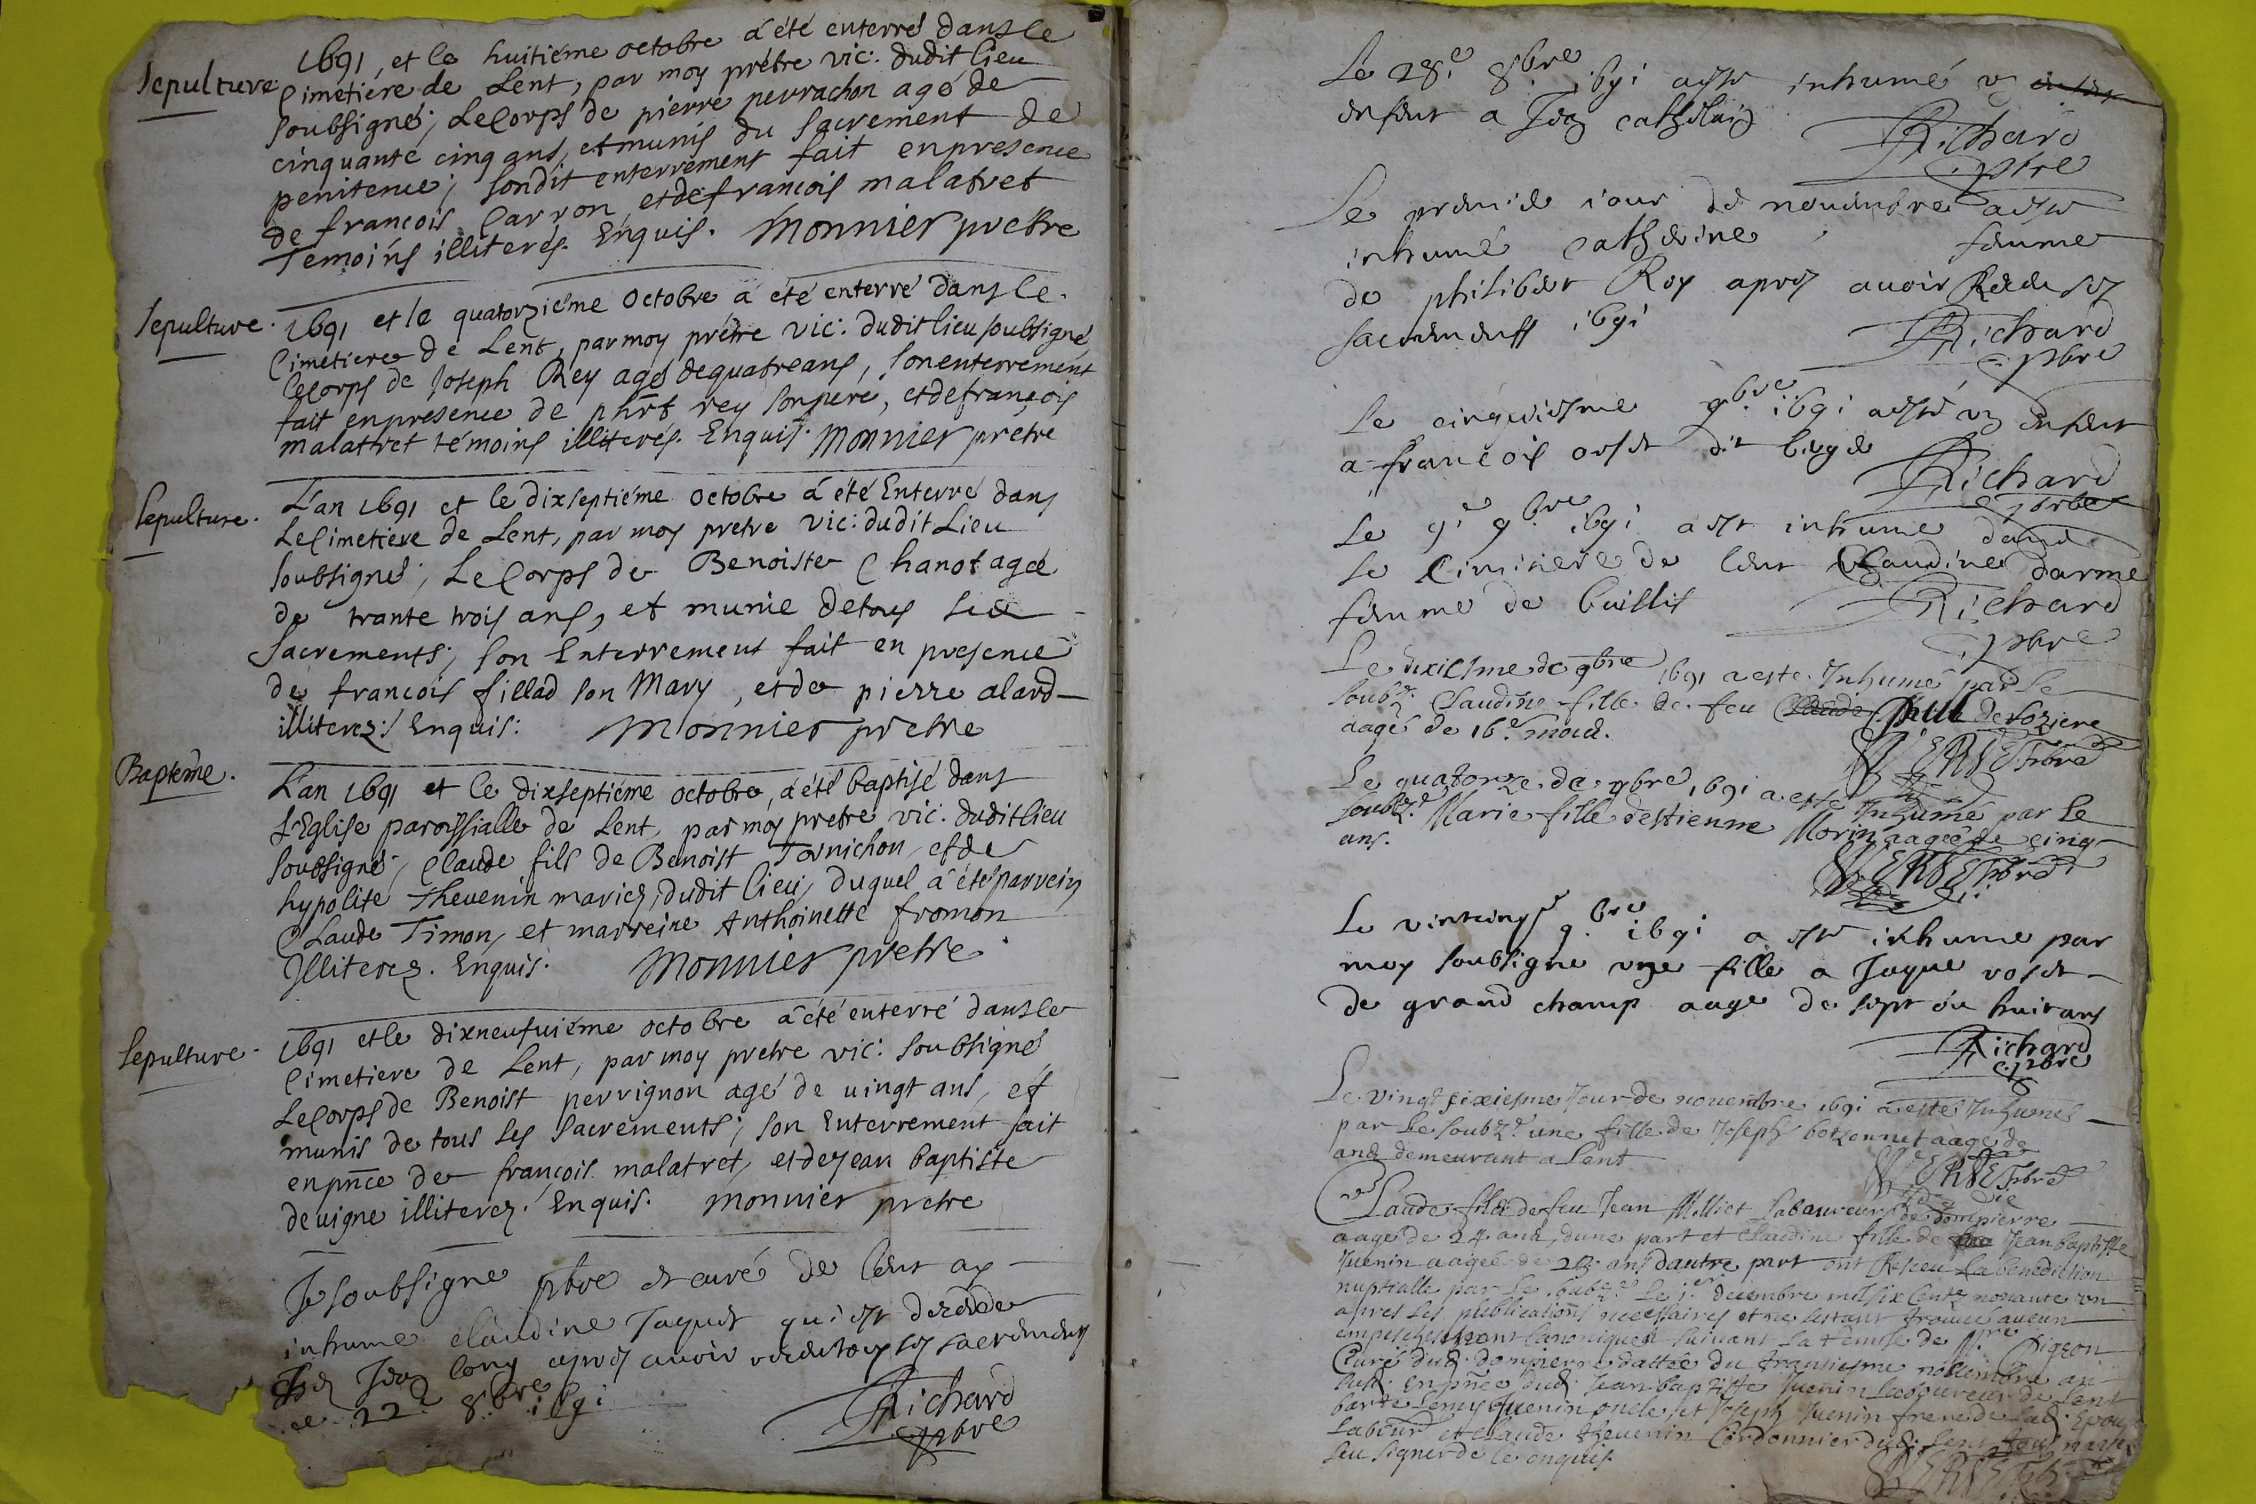 Sepulture
1691, et le huitiéme octobre á été enterré dans le
Cimetiére de Lent, par moy prétre vic: dudit lieu
soubsigné; Le Corps de pierre perrachon agé de
cinquante cinq ans, et munis du sacrement de
penitence; sondit enterrement fait en presence
de francois Carron et de francois malatret
Temoins illiterés. Enquis. Monnier pretre
Sepulture.
1691 et le quatorziéme Octobre á été enterré dans le
Cimetiere de Lent, par moy prétre vic: dudit lieu soubsigné
le Corps de Joseph Rey agé de quatre ans, son enterrement
fait en presence de phïbt rey son pere, et de françois
malatret témoins illiterés. Enquis. Monnier pretre
Sepulture.
L'an 1691 et le dixseptiéme octobre á été Enterré dans
Le Cimetiere de Lent, par moy pretre vic: dudit Lieu
soubsigné; Le Corps de Benoiste Chanot agée
de trante trois ans, et munie de tous ses
Sacrements; son Enterrement fait en presence
de francois fillad son Mary, et de pierre alard
illiterez: Enquis: Monnier pretre
Bapteme.
L'an 1691 et le dixseptiéme octobre, á été baptisé dans
L'Eglise paroissialle de Lent, par moy pretre vic: dudit lieu
soubsigné, Claude fils de Benoist Tornichon et de
hypolite Thevenin mariez, dudit lieu, duquel á été parrein
Claude Timon, et marreine Anthoinette fromon
Illiterez. Enquis. Monnier pretre.
Sepulture.
1691 et le dixneufuiéme octobre á été enterré dans le
Cimetiere de Lent, par moy pretre vic: soubsigné
Le Corps de Benoist perrignon agé de vingt ans, et
munis de tous ses sacrements; son Enterrement fait
en pñce de françois malatret, et de jean baptiste
devigne illiterez. Enquis. Monnier pretre
Je soubsigne pbre et curé de lent ay
inhume claudine Jaquet qui est decedee
Jean long apres avoir receu tous ses sacremens
ce 22e 8bre 1691
Richard
pbre
Le 28e 8bre 1691 a este inhumé un
enfant a Jean
Richard
pbre
Le premier iour de nouembre a este
inhumé catherine femme
de philibert Roy apres avoir Receu ses
sacremens 1691
Richard
pbre
Le cinquiesme 9bre 1691 a esté un enfant
a francois dit
Richard
pbre
Le 9e 9bre 1691 a est inhume dans
le Cimitiere de lent Claudine darme
femme de
Richard
pbre
Le dixiesme de 9bre 1691 a esté Inhumé par le
soubzé. Claudine fille de feu de Loziere
aagé de 16e mois.
Le quatorze de 9bre 1691 a esté Inhumé par Le
soubzé. Marie fille d'estienne Morin aagée de cinq
ans.
Le vintcinq 9bre 1691 a este inhume par
moy soubsigne une fille a Jaque
de grand champ aage de sept ou huit ans
Richard
pbre
Le vingt sixiesme Jour de nouembre 1691 a esté Inhumée
par Le soubzé une fille de Joseph aage de
ans demeurant a Lent
Claude fils de feu Jean Milliet Laboureur de dompierre
aagé de 24 ans, dune part et Claudine fille de Jean baptiste
Juenin aagée de ans dautre part ont Receu La benediction
nuptialle par Le soubzé Le 1er decembre mil six Centz nonante un
apres Les publications necessaires et ne sestant trouué aucun
empeschement Canonique suiuant La remise de Mre Pigeon
Curé dud. dompierre dattée du nouembre
En pñce dud. Jean baptiste Juenin Laboureur de Lent
Juenin oncle, et Joseph Juenin frere de Lad.
et Claude Theuenin Cordonnier dud. Lent
signer de ce enquis.